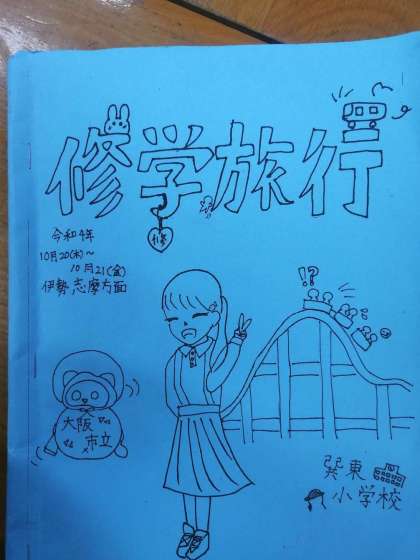 修学旅行
修
令和4年
10月20(木)～
10月21(金)
伊勢,志摩方面
!?
大阪
市立
巽東
小学校